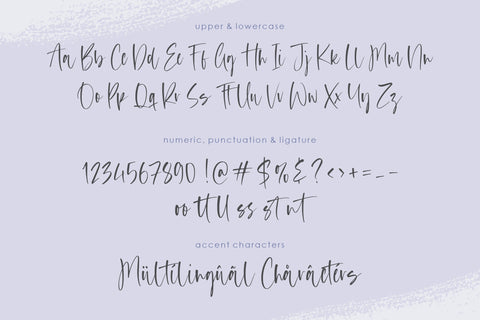 upper & lowercase
Aa Bb Cc Dd Ee Ff Gg Hh Ii Jj Kk Ll Mm Nn
Oo Pp Qq Rr Ss Tt Uu Vv Ww Xx Yy Zz
numeric, punctuation & ligature
1234567890 !@#$%&?<>+=_-
oo tt ll ss st nt
accent characters
Mültilingûâl Chåråctérs